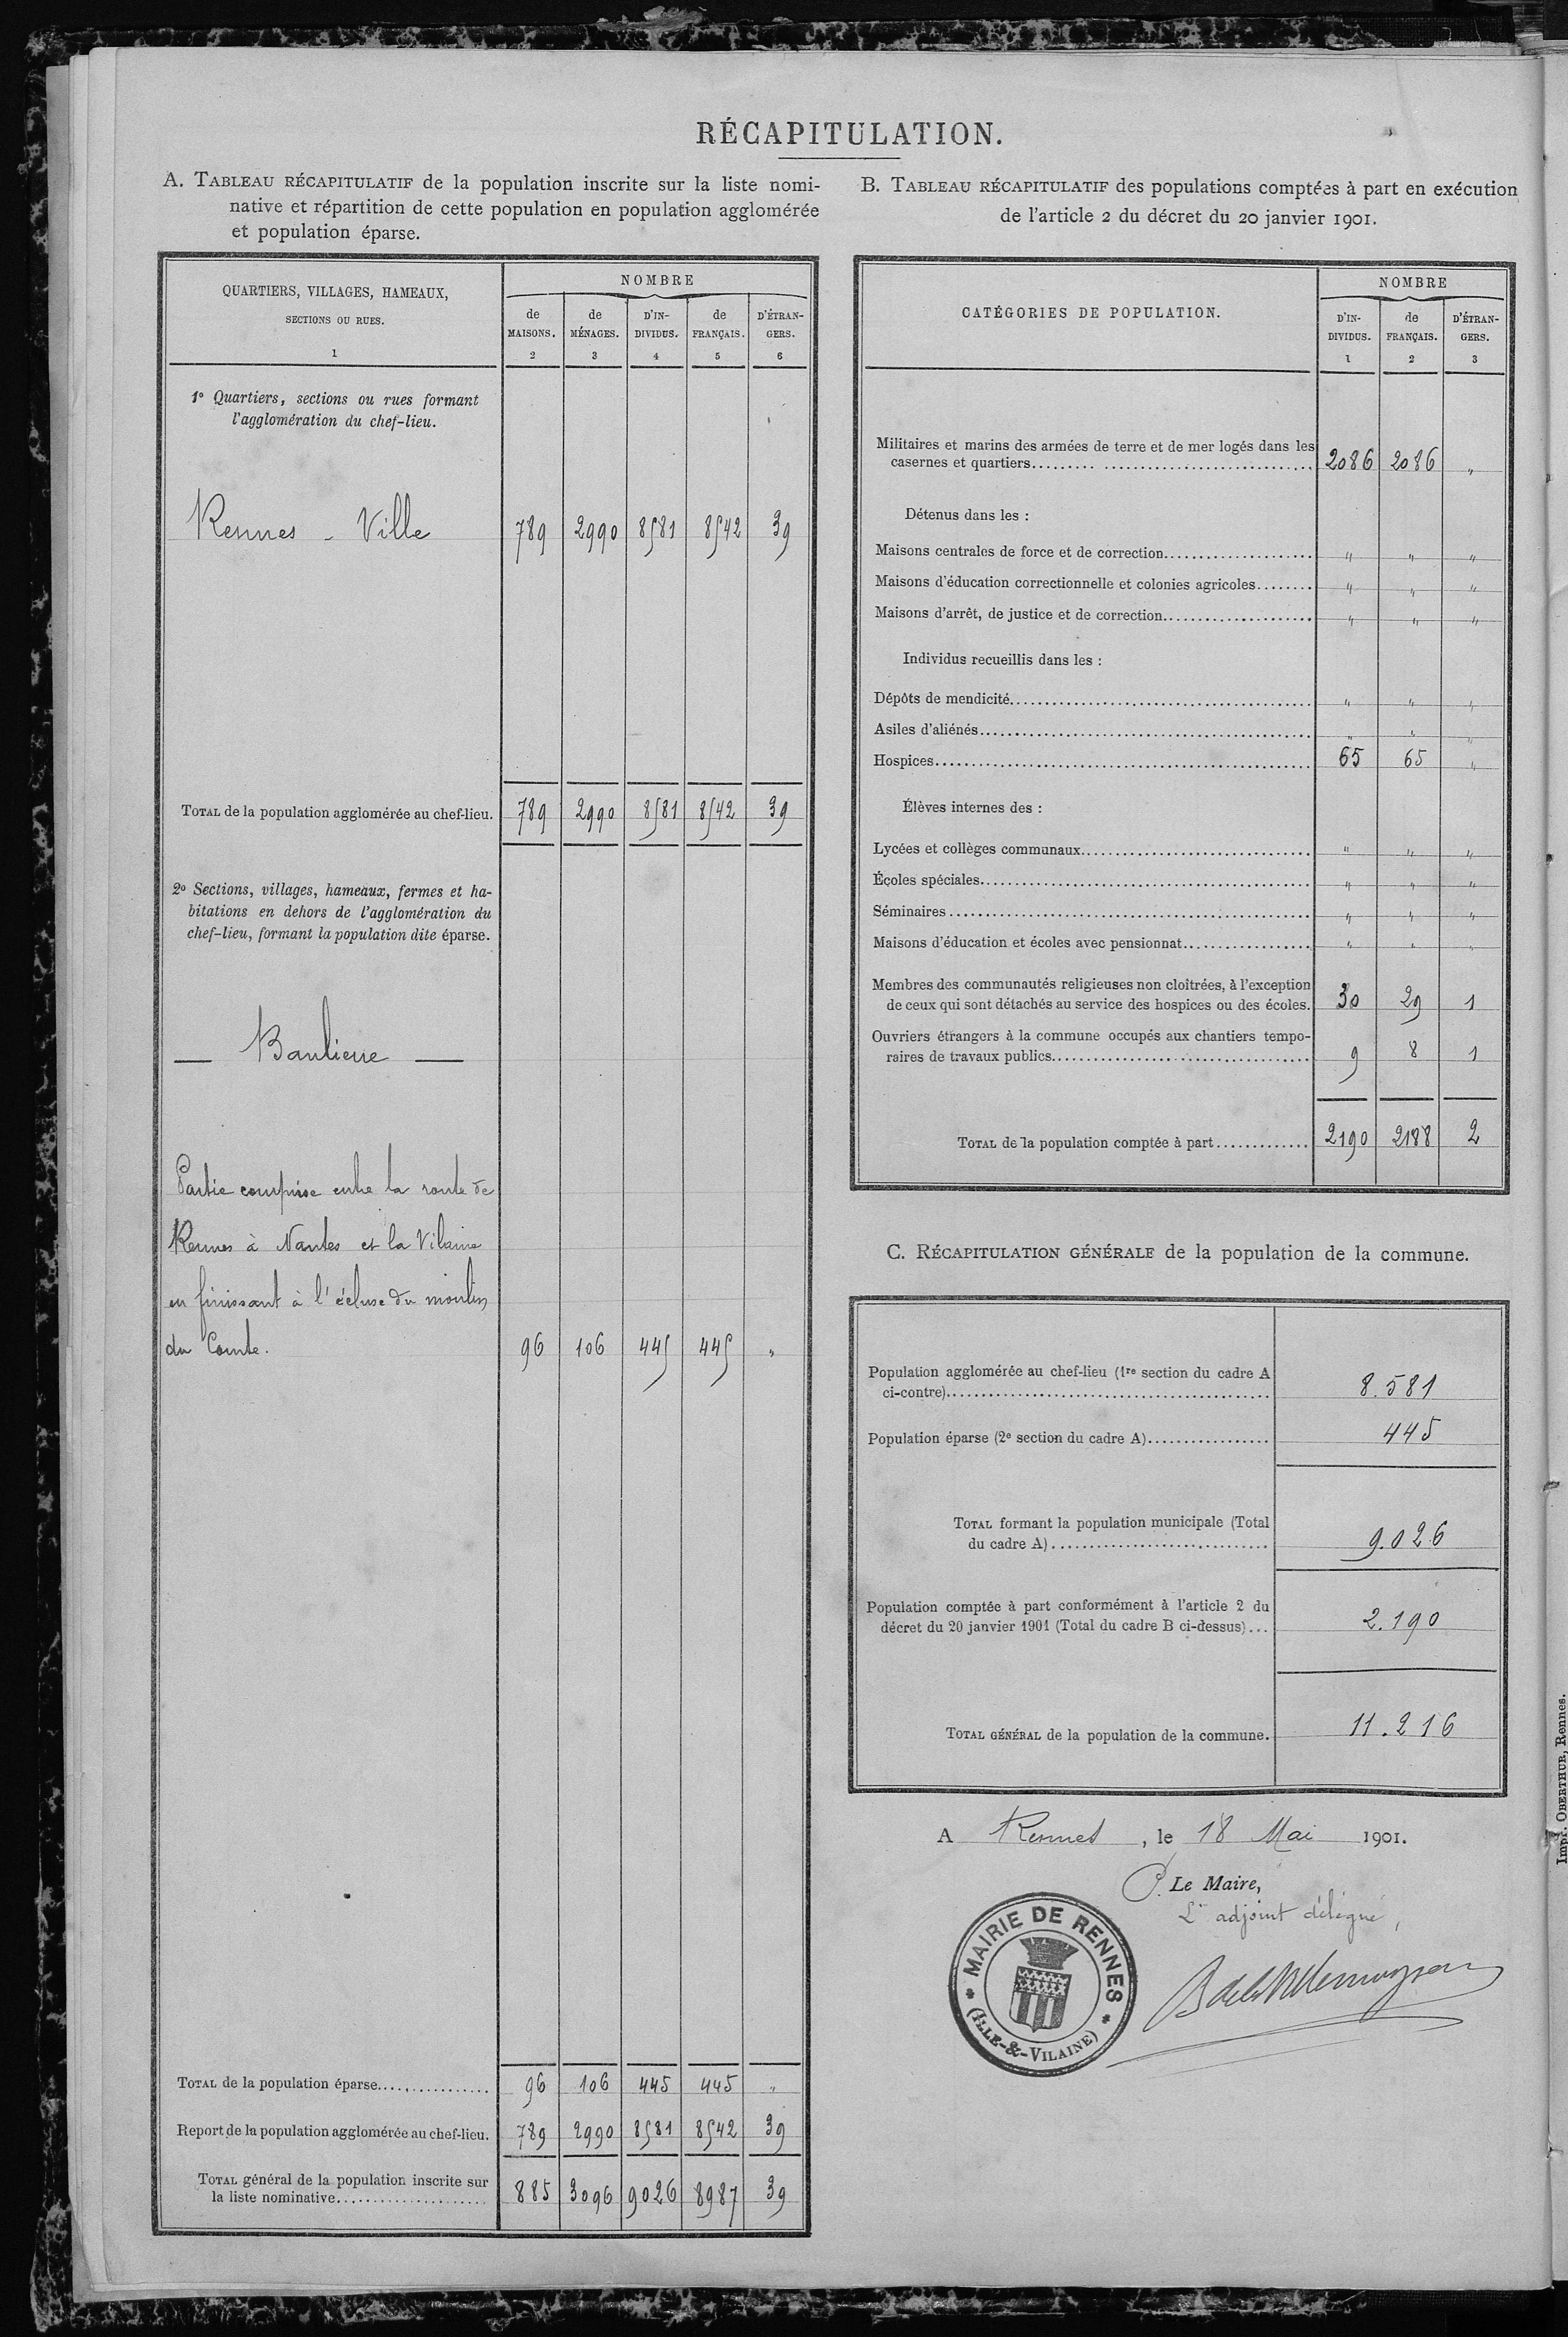 RÉCAPITULATION.
A. TABLEAU RÉCAPITULATIF de la population inscrite sur la liste nomi-
native et répartition de cette population en population agglomérée
et population éparse.
QUARTIERS, VILLAGES, HAMEAUX,
SECTIONS OU RUES.
1
NOMBRE
de MAISONS. 2
de MÉNAGES. 3
D'IN-DIVIDUS. 4
de FRANÇAIS. 5
D'ÉTRAN-GERS. 6
1º Quartiers, sections ou rues formant
l'agglomération du chef-lieu.
Rennes - Ville 789 2990 8581 8542 39
TOTAL de la population agglomérée au chef-lieu. 789 2990 8581 8542 39
2º Sections, villages, hameaux, fermes et ha-
bitations en dehors de l'agglomération du
chef-lieu, formant la population dite éparse.
— Banlieue —
Partie comprise entre la route de
Rennes à Nantes et la Vilaine
en finissant à l'écluse du moulin
du Comte. 96 106 445 445 "
TOTAL de la population éparse................ 96 106 445 445 "
Report de la population agglomérée au chef-lieu. 789 2990 8581 8542 39
TOTAL général de la population inscrite sur
la liste nominative..................... 885 3096 9026 8987 39
B. TABLEAU RÉCAPITULATIF des populations comptées à part en exécution
de l'article 2 du décret du 20 janvier 1901.
CATÉGORIES DE POPULATION.
NOMBRE
D'IN-DIVIDUS. 1
de FRANÇAIS. 2
D'ÉTRAN-GERS. 3
Militaires et marins des armées de terre et de mer logés dans les
casernes et quartiers........ 2086 2086 "
Détenus dans les :
Maisons centrales de force et de correction........ " " "
Maisons d'éducation correctionnelle et colonies agricoles........ " " "
Maisons d'arrêt, de justice et de correction........ " " "
Individus recueillis dans les :
Dépôts de mendicité........ " " "
Asiles d'aliénés........ " " "
Hospices........ 65 65 "
Élèves internes des :
Lycées et collèges communaux........ " " "
Écoles spéciales........ " " "
Séminaires........ " " "
Maisons d'éducation et écoles avec pensionnat........ " " "
Membres des communautés religieuses non cloîtrées, à l'exception
de ceux qui sont détachés au service des hospices ou des écoles. 30 29 1
Ouvriers étrangers à la commune occupés aux chantiers tempo-
raires de travaux publics........ 9 8 1
TOTAL de la population comptée à part............. 2190 2188 2
C. RÉCAPITULATION GÉNÉRALE de la population de la commune.
Population agglomérée au chef-lieu (1re section du cadre A
ci-contre)........ 8.581
Population éparse (2e section du cadre A)................. 445
TOTAL formant la population municipale (Total
du cadre A)........ 9.026
Population comptée à part conformément à l'article 2 du
décret du 20 janvier 1901 (Total du cadre B ci-dessus)... 2.190
TOTAL GÉNÉRAL de la population de la commune. 11.216
A Rennes, le 18 Mai 1901.
P. Le Maire,
L'adjoint délégué,
MAIRIE DE RENNES
(ILLE-&-VILAINE)
Impr. OBERTHUR, Rennes.